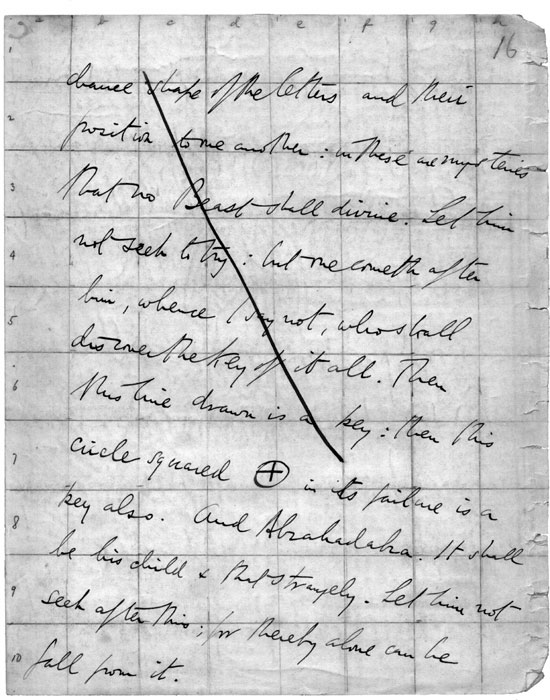 c d e f g h
16
1
chance shape of the letters and their
2
position to one another: in these are mysteries
3
that no Beast shall divine. Let him
4
not seek to try: but one cometh after
him, whence I say not, who shall
5
discover the Key of it all. Then
6
this line drawn is a key: then this
7
circle squared ⊕ in its failure is a
key also. And Abrahadabra. It shall
8
be his child & that strangely. Let him not
9
seek after this; for thereby alone can he
10
fall from it.